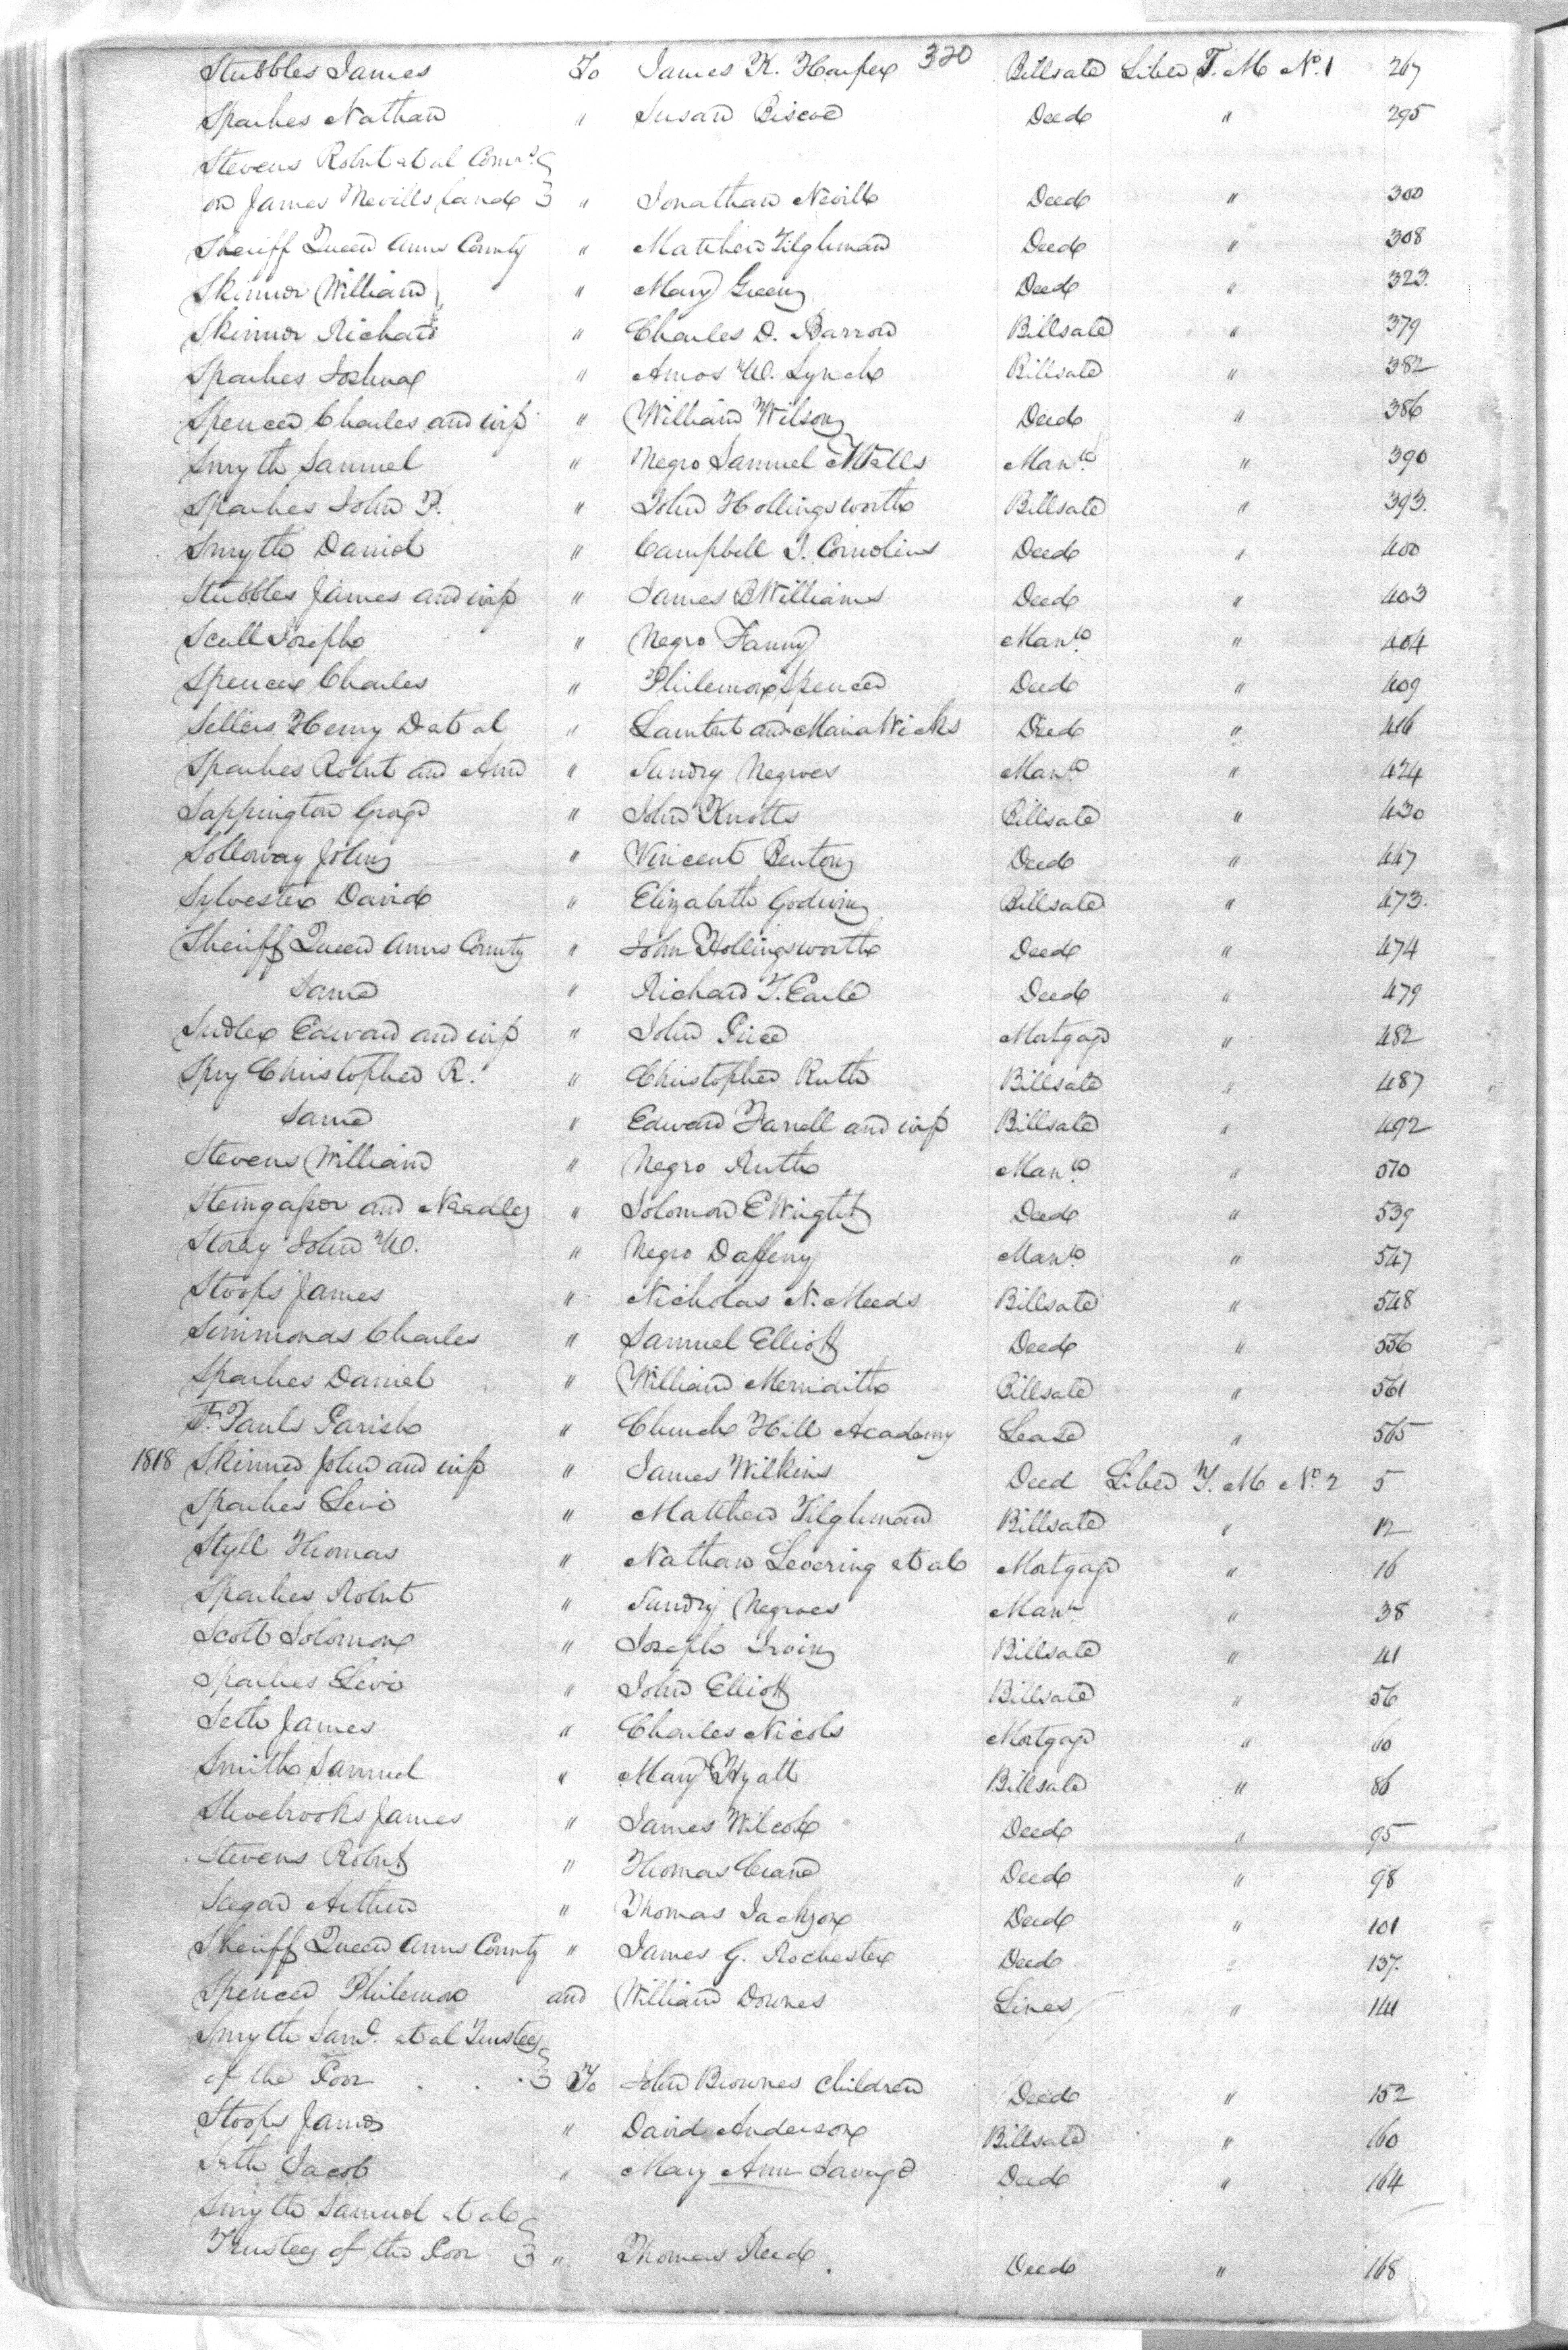 320
Stubbles James To James K. Harper Billsale Liber T. M No. 1 267
Sparkes Nathan " Susan Biscoe Deed " 295
Stevens Robert et al Comrs.
on James Nevills land " Jonathan Nevill Deed " 300
Sheriff Queen Anns County " Matthew Tilghman Deed " 308
Skinner William " Mary Green Deed " 323.
Skinner Richard " Charles D. Barrow Billsale " 379
Sparkes Joshua " Amos W. Lynch Billsale " 382
Spencer Charles and wife " William Wilson Deed " 386
Smyth Samuel " Negro Samuel Walls Manto. " 390
Sparkes John F. " John Hollingsworth Billsale " 393.
Smyth David " Campbell J. Cornelius Deed " 400
Stubbles James and wife " James B Williams Deed " 403
Scull Joseph " Negro Fanny Manto. " 404
Spencer Charles " Philemon Spencer Deed " 409
Sellers Henry D et al " Lambert and Maria Wicks Deed " 416
Sparkes Robert and Ann " Sundry Negroes Manto. " 424
Sappington George " John Knotts Billsale " 430
Solloway John " Vincent Benton Deed " 447
Sylvester David " Elizabeth Godwin Billsale " 473.
Sheriff Queen Anns County " John Hollingsworth Deed " 474
Same " Richard T. Earle Deed " 479
Sudler Edward and wife " John Price Mortgage " 482
Spry Christopher R. " Christopher Ruth Billsale " 487
Same " Edward Farrell and wife Billsale " 492
Stevens William " Negro Ruth Manto. " 510
and Needles " Solomon E Wright Deed " 539
Storey John W. " Negro Daffeny Manto. " 547
Stoops James " Nicholas N. Meeds Billsale " 548
Simmonds Charles " Samuel Elliott Deed " 556
Sparkes Daniel " William Merridith Billsale " 561
St. Pauls Parish " Church Hill Academy Lease " 565
1818 Skinner John and wife " James Wilkins Deed Liber T. M No. 2 5
Sparkes Levi " Matthew Tilghman Billsale " 12
Styll Thomas " Nathan Levering et al Mortgage " 16
Sparkes Robert " Sundry Negroes Manto " 38
Scott Solomon " Joseph Irvin Billsale " 41
Sparkes Levi " John Elliott Billsale " 56
Seth James " Charles Nicols Mortgage " 60
Smith Samuel " Mary Hyatt Billsale " 86
Shoebrooks James " James Wilcox Deed " 95
Stevens Robert " Thomas Crane Deed " 98
Seegar Arthur " Thomas Jackson Deed " 101
Sheriff Queen Anns County " James G. Rochester Deed " 137.
Spencer Philemon and William Downes Lines " 141
Smyth Saml. et al Trustees
of the Poor To John Brownes children Deed " 152
Stoops James " David Anderson Billsale " 160
Seth Jacob " Mary Ann Savage Deed " 164
Smyth Samuel et al
Trustees of the Poor " Thomas Reed Deed " 168